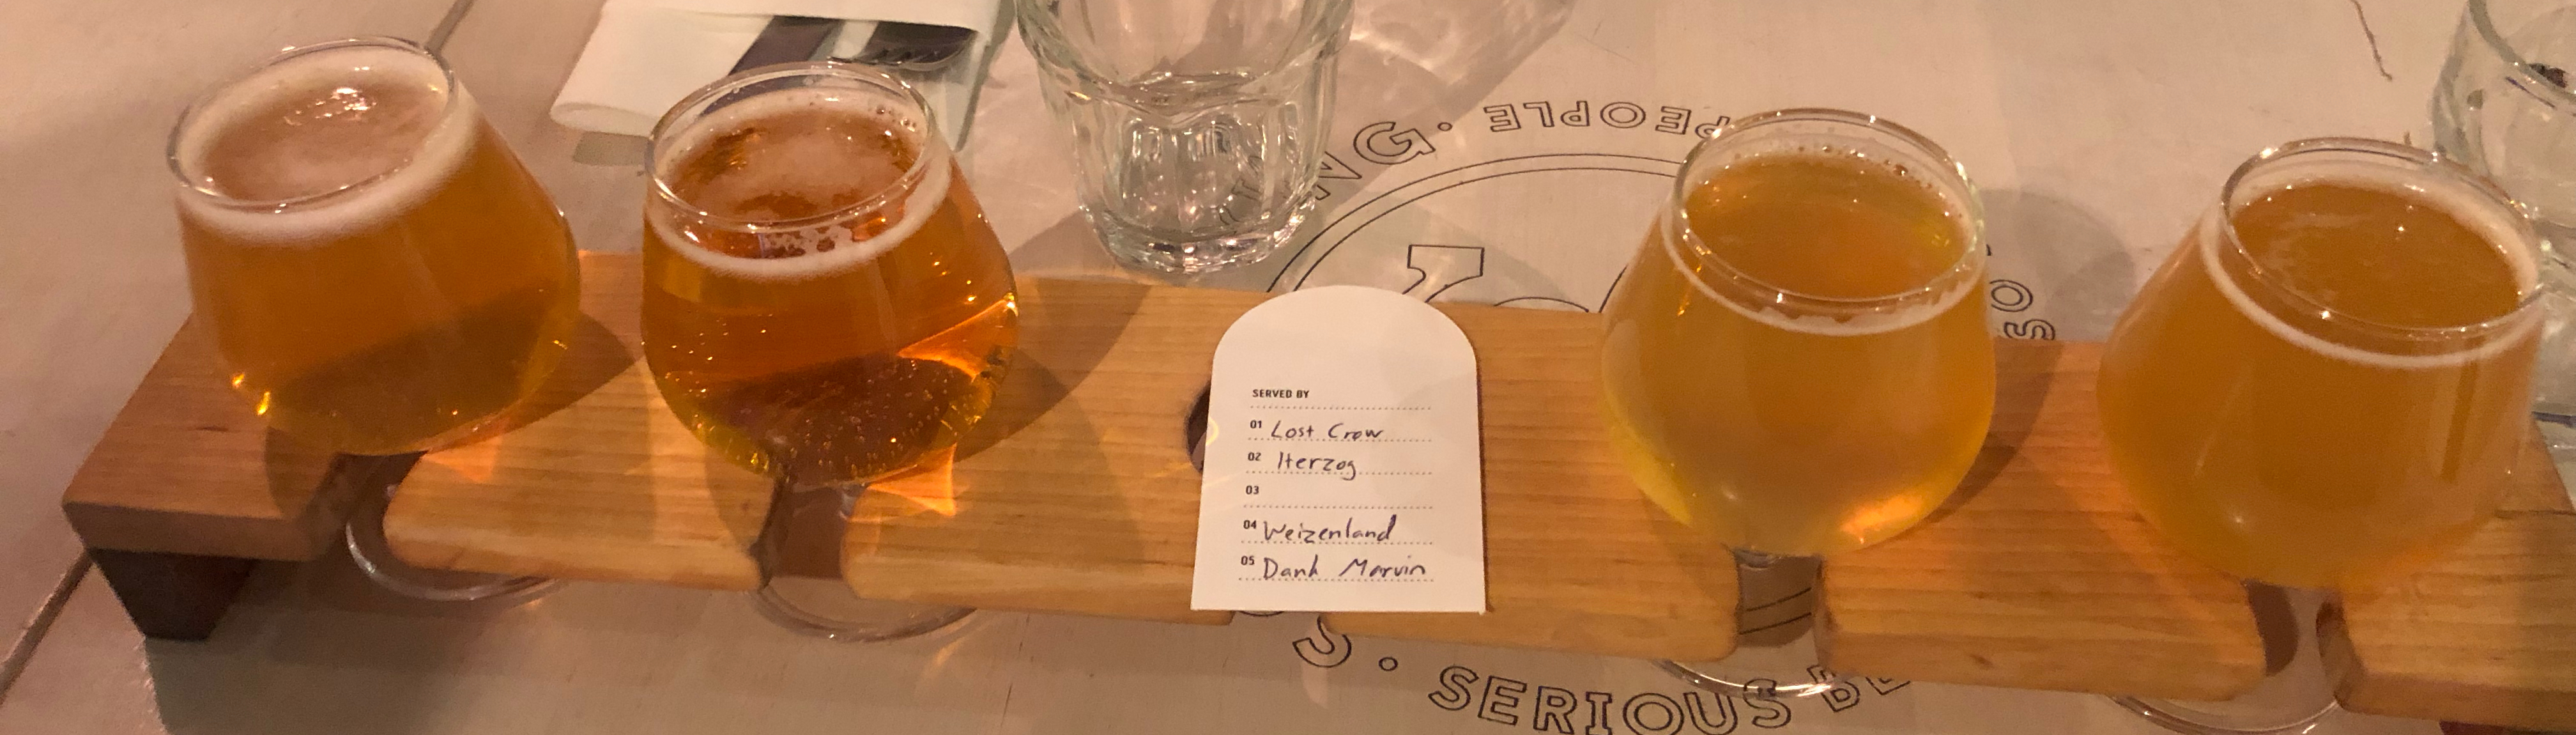 NG. PEOPLE
SERVED BY
01 Lost Crow
02 Herzog
03
04 Weizenland
05 Dank Marvin
SERIOUS BE